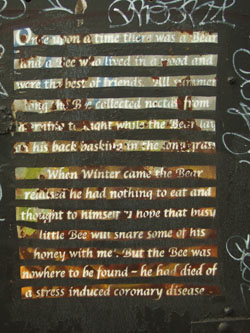 Once upon a time there was a Bear
and a Bee who lived in a wood and
were the best of friends. All summer
long the Bee collected nectar from
morning to night while the Bear lay
on his back basking in the long grass
When Winter came the Bear
realised he had nothing to eat and
thought to himself 'I hope that busy
little Bee will share some of his
honey with me'. But the Bee was
nowhere to be found - he had died of
a stress induced coronary disease.